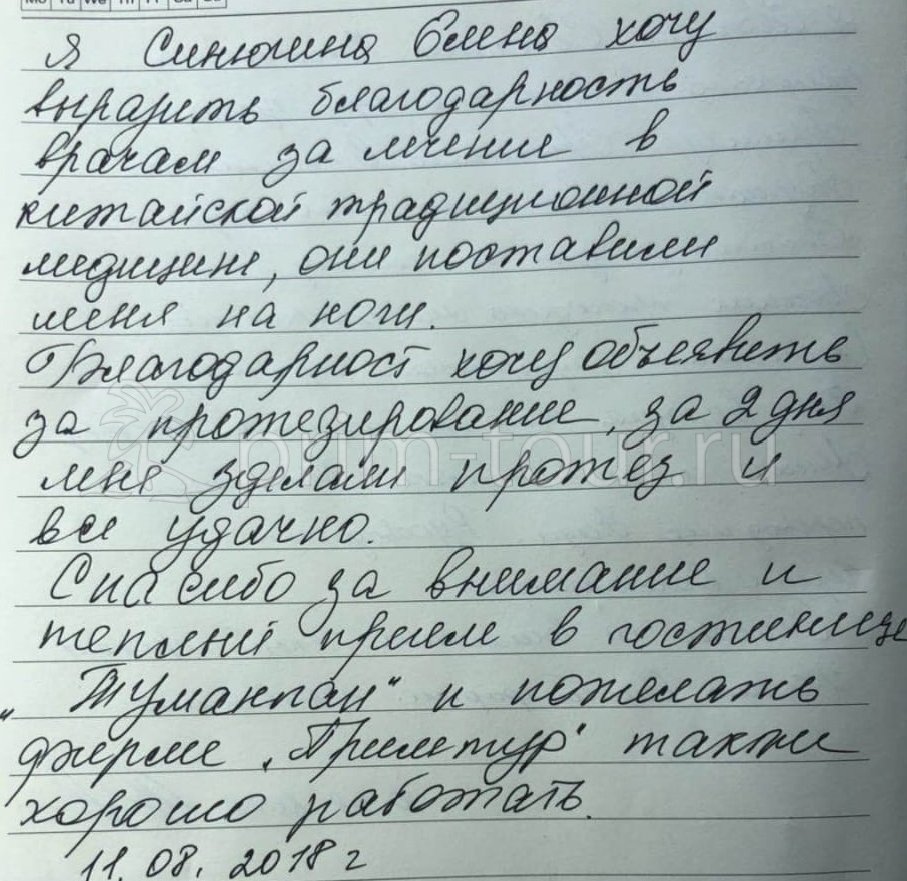 Mo Tu We Th Fr Sa Su
Я Синюгина Елена хочу
выразить благодарность
врачам за лечение в
китайской традиционной
медицине, они поставили
меня на ноги.
Благодарност хочу объеявить
за протезирование, за 2 дня
мне зделали протез и
все удачно.
Спасибо за внимание и
теплый прием в гостинице
"Туманган" и пожелать
фирме "Примтур" также
хорошо работать.
11. 08. 2018 г
prim-tour.ru